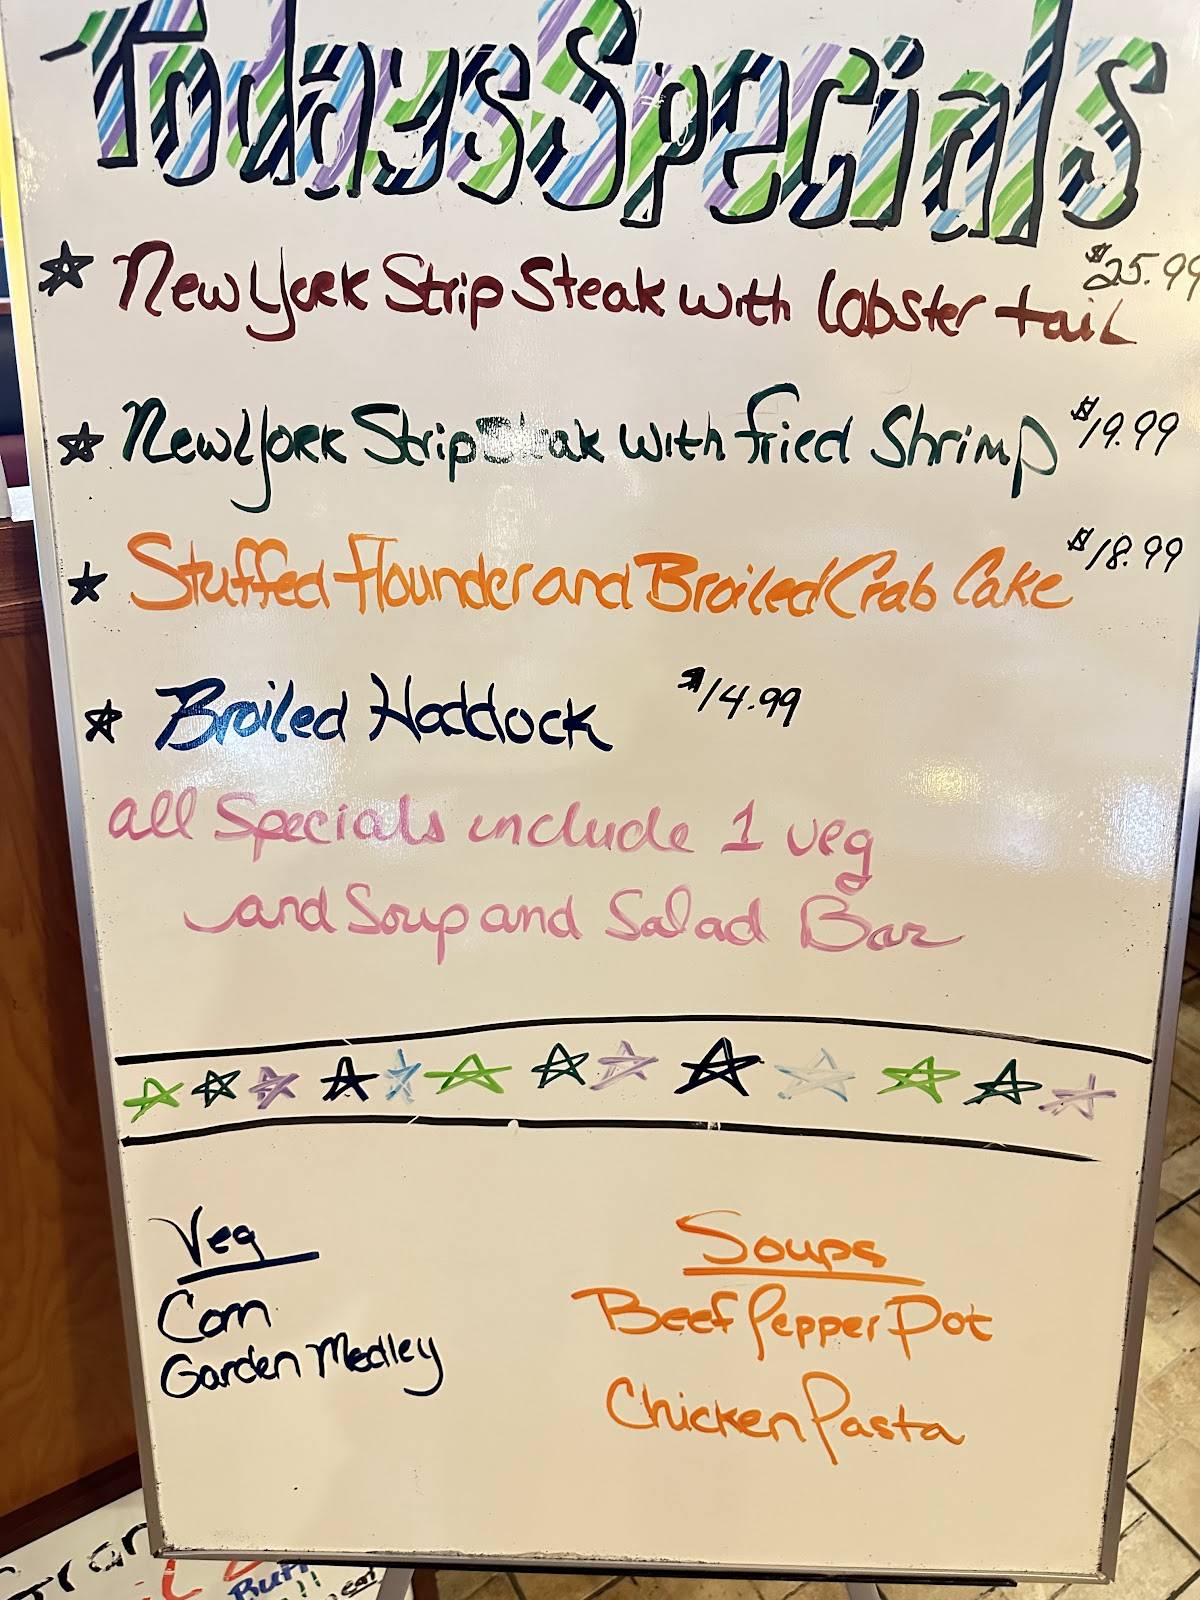 Todays Specials
New York Strip Steak with lobster tail $25.99
New York Strip Steak with fried Shrimp $19.99
Stuffed Flounder and Broiled Crab Cake $18.99
Broiled Haddock $14.99
all Specials include 1 veg
and Soup and Salad Bar
Veg
Corn
Garden Medley
Soups
Beef Pepper Pot
Chicken Pasta